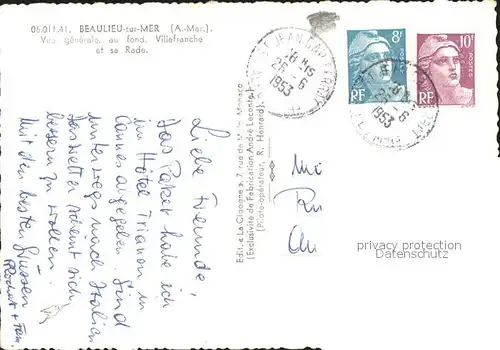 06.011.41. BEAULIEU-sur-MER (A.-Mar.).
Vue générale, au fond, Villefranche
et sa Rade.
8F
10F
POSTES
RF
RF
18 H15
26-6
1953
1953
Edit. "La Cigogne" 7, rue de
Monaco
Exclusivité de Fabrication André Leconte
(Pilote-opérateur, R. Henrard).
Liebe Freunde,
Das Paket habe ich
im Hôtel Trianon in
Cannes abgegeben. Sind
unterwegs nach Italien
das Wetter scheint sich
bessern zu wollen.
Mit den besten Grüssen
+ Fam.
privacy protection
Datenschutz